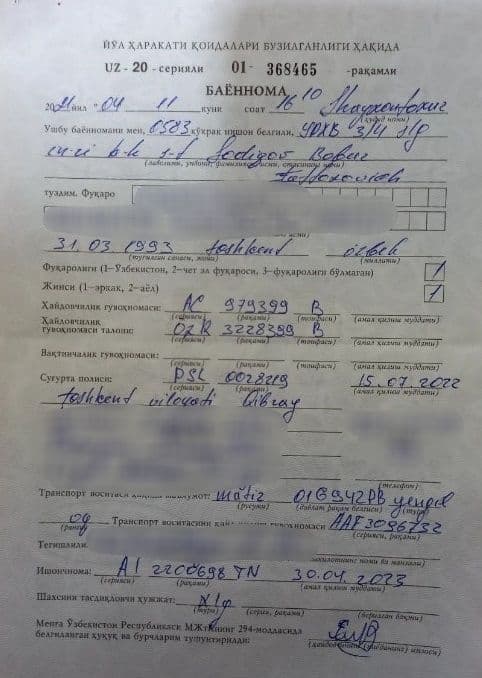 ЙЎЛ ҲАРАКАТИ ҚОИДАЛАРИ БУЗИЛГАНЛИГИ ҲАҚИДА
UZ - 20 - серияли 01- 368465 -рақамли
БАЁННОМА
2021 йил " 04 11 куни соат 16 10 Shayxontoxur
(ҳудуд номи)
Ушбу баённомани мен, 0583 кўкрак нишон белгили, 3/4
Sodiqov Bobur
туздим. Фуқаро
31.03 1993 toshkent özbek
(туғилган санаси, жойи) (миллати)
Фуқаролиги (1–Ўзбекистон, 2–чет эл фуқароси, 3–фуқаролиги бўлмаган) 1
Жинси (1–эркак, 2–аёл) 1
Ҳайдовчилик гувоҳномаси: AC 979399 B
(серияси) (рақами) (тоифаси) (амал қилиш муддати)
Ҳайдовчилик
гувоҳномаси талони: OZR 3228399 B
(серияси) (рақами) (тоифаси) (амал қилиш муддати)
Вақтинчалик гувоҳномаси:
(серияси) (рақами) (тоифаси) (амал қилиш муддати)
Суғурта полиси: DSL 0028219 15.07.2022
(серияси) (рақами) (амал қилиш муддати)
toshkent viloyati Qibray
(телефони)
Транспорт воситаси matiz 01G942PB yengil
(русуми) (давлат рақам белгиси) (тури)
oq Транспорт воситасини гувоҳномаси AAF3096732
(ранги) (серияси, рақами)
Тегишлили.
Ишончнома: A1 2200698 TN 30.04.2023
(серияси) (рақами) (амал қилиш муддати)
Шахсини тасдиқловчи ҳужжат: х/ф
(тури) (серия, рақами) (берилган вақти)
Менга Ўзбекистон Республикаси МЖтКнинг 294-моддасида
белгиланган ҳуқуқ ва бурчларим тушунтирилди: